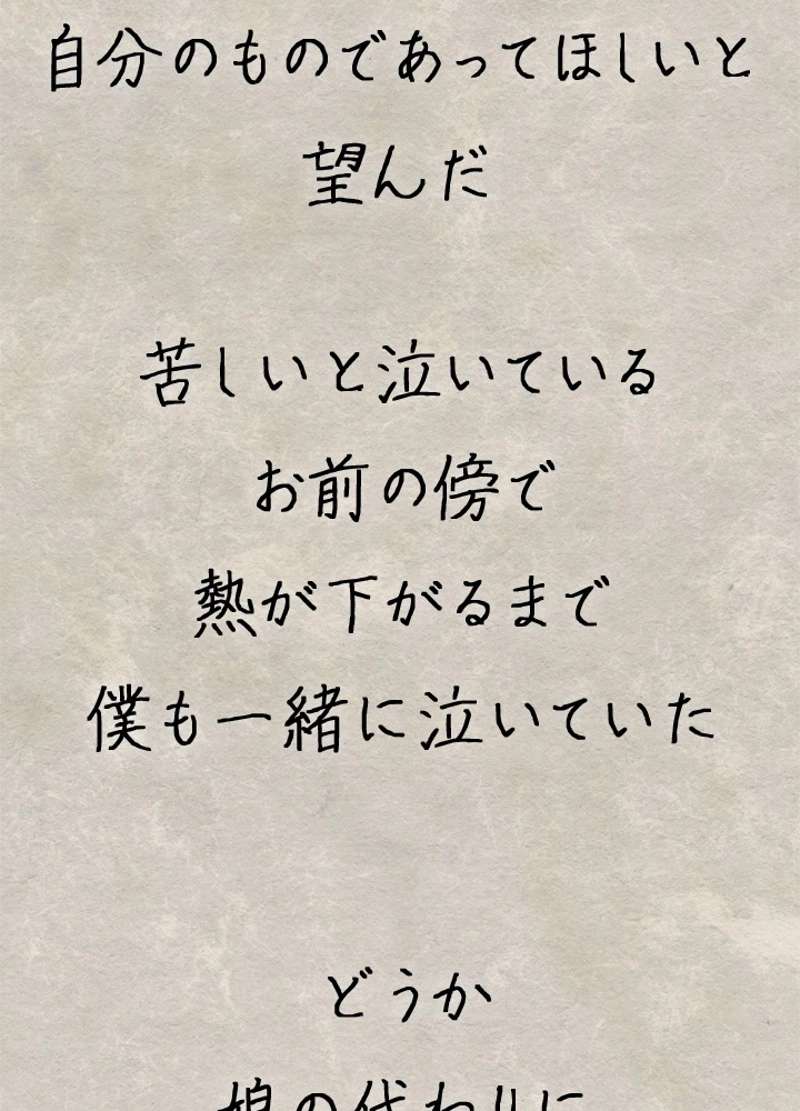 自分のものであってほしいと
望んだ
苦しいと泣いている
お前の傍で
熱が下がるまで
僕も一緒に泣いていた
どうか
娘の代わりに